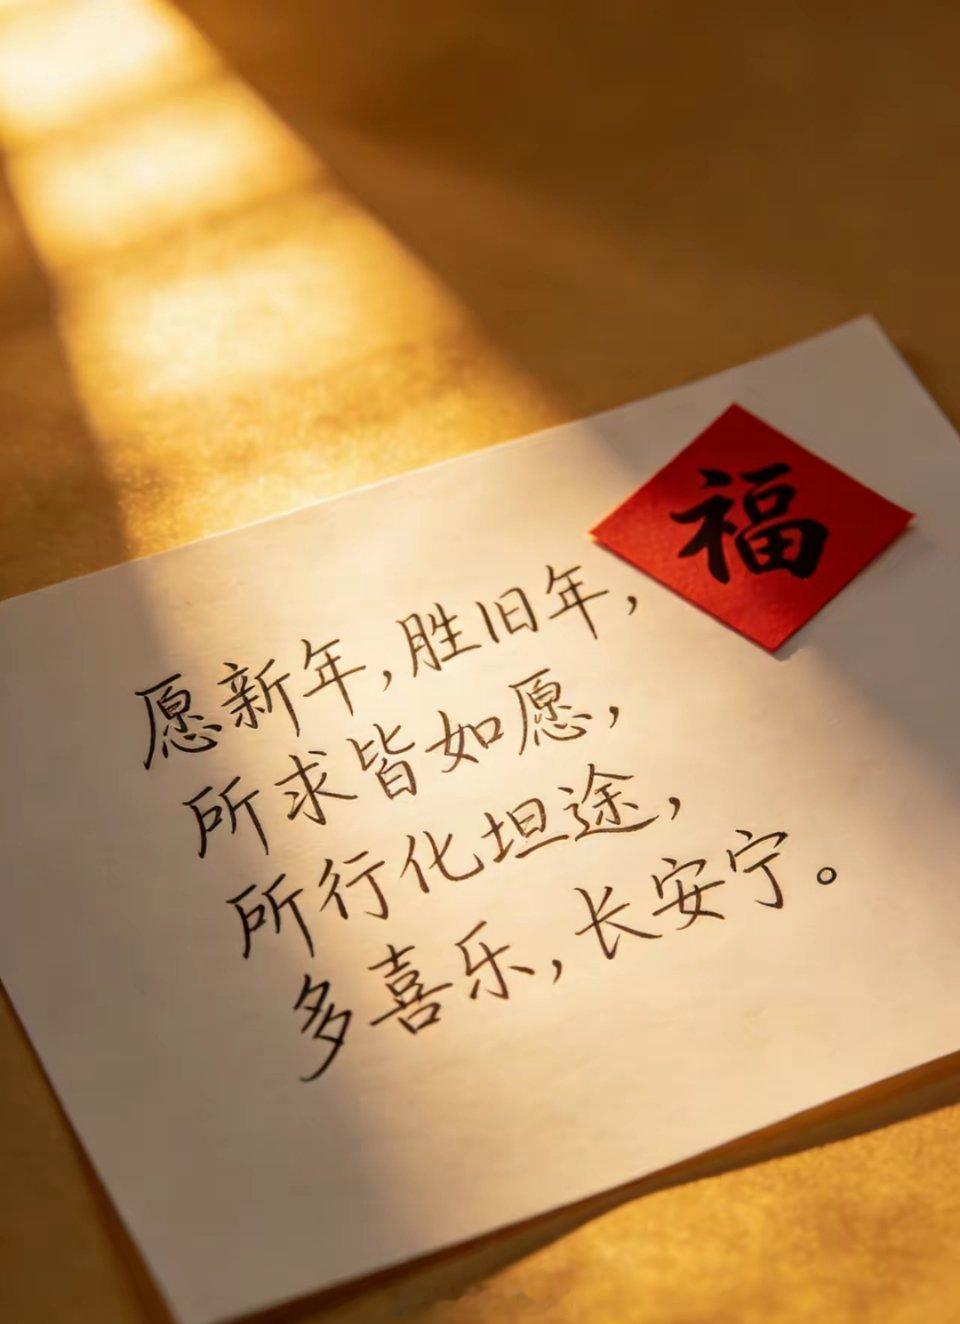 福
愿新年,胜旧年,
所求皆如愿,
所行化坦途,
多喜乐,长安宁。